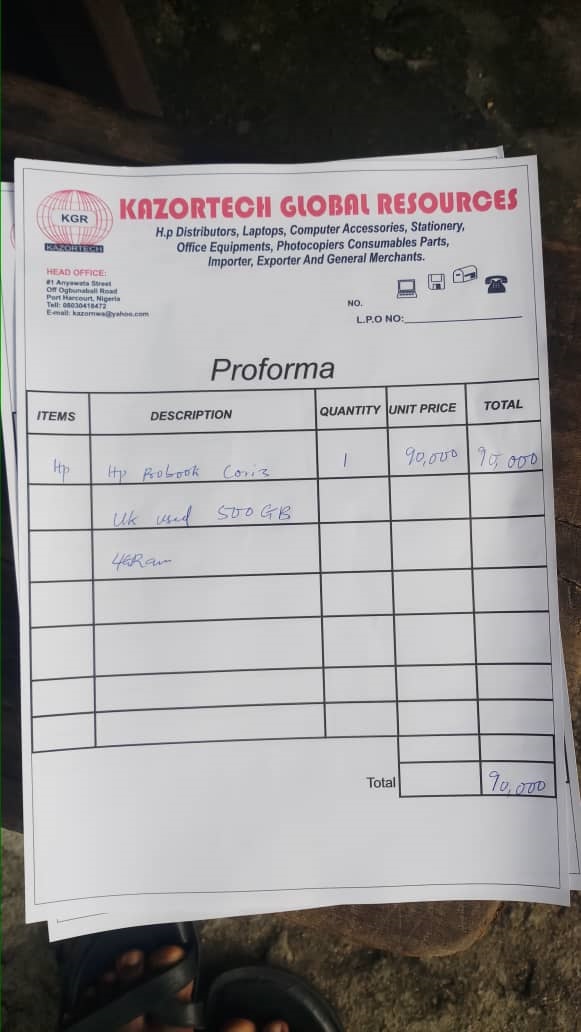 KGR
KAZORTECH
KAZORTECH GLOBAL RESOURCES
H.p Distributors, Laptops, Computer Accessories, Stationery,
Office Equipments, Photocopiers Consumables Parts,
Importer, Exporter And General Merchants.
HEAD OFFICE:
#1 Anyawata Street
Off Ogbunabali Road
Port Harcourt, Nigeria
Tell: 08030418472
E-mail: kazornwa@yahoo.com
NO.
L.P.O NO:
Proforma
ITEMS DESCRIPTION QUANTITY UNIT PRICE TOTAL
Hp Hp Probook Cori3 1 90,000 90,000
Uk used 500GB
4GRam
Total 90,000